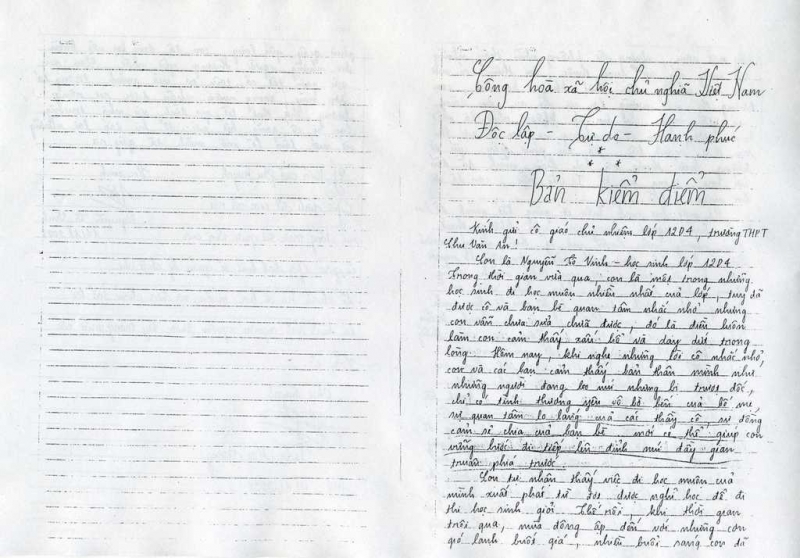 Cộng hoà xã hội chủ nghĩa Việt Nam
Độc lập - Tự do - Hạnh phúc
* * *
Bản kiểm điểm
Kính gửi cô giáo chủ nhiệm lớp 12D4, trường THPT
Chu Văn An!
Con là Nguyễn Tô Vinh - học sinh lớp 12D4
Trong thời gian vừa qua, con là một trong những
học sinh đi học muộn nhiều nhất của lớp, tuy đã
được cô và bạn bè quan tâm nhắc nhở nhưng
con vẫn chưa sửa chữa được, đó là điều luôn
làm con cảm thấy xấu hổ và day dứt trong
lòng. Hôm nay, khi nghe những lời cô nhắc nhở,
con và các bạn cảm thấy bản thân mình như
những người đang leo núi nhưng bị trượt dốc,
chỉ có tình thương yêu vô bờ bến của bố mẹ
sự quan tâm lo lắng của các thầy cô, sự đồng
cảm sẻ chia của bạn bè mới có thể giúp con
vững bước đi tiếp lên đỉnh núi đầy gian
truân phía trước.
Con tự nhận thấy việc đi học muộn của
mình xuất phát từ đợt được nghỉ học để đi
thi học sinh giỏi. Thế rồi, khi thời gian
trôi qua, mùa đông ập đến với những cơn
gió lạnh buốt giá, nhiều buổi sáng con đã